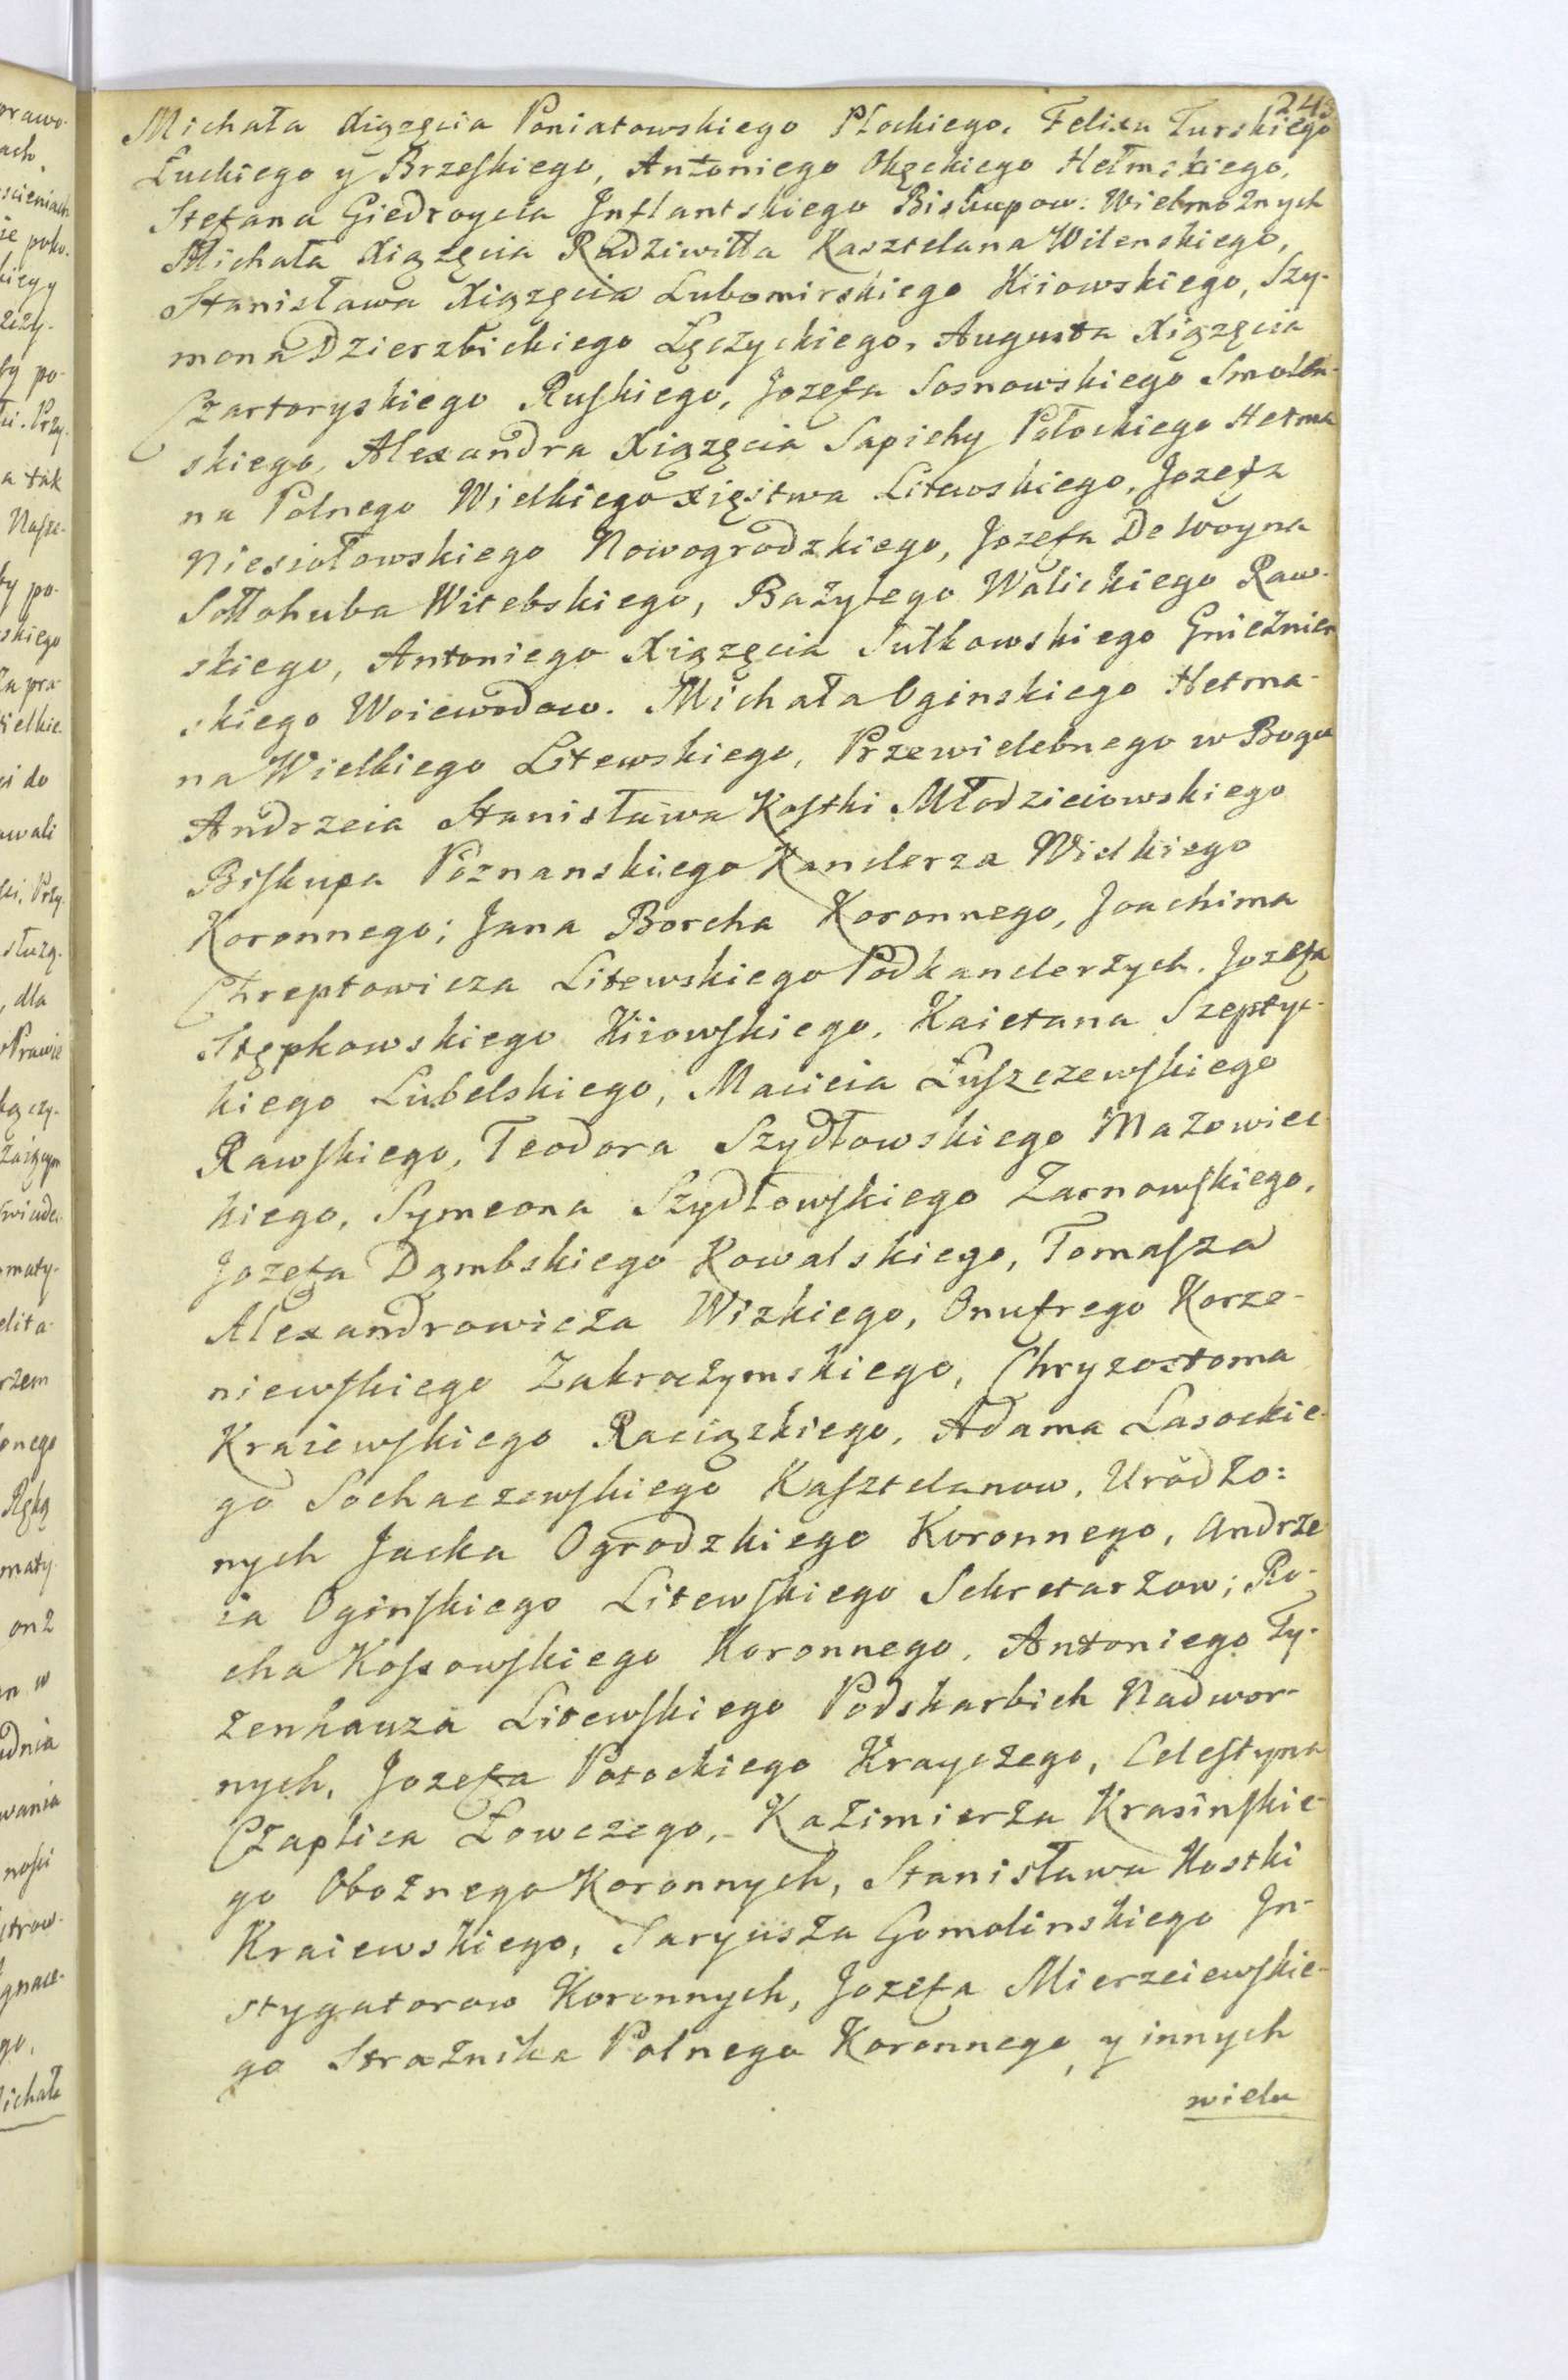 243
Michała Xiążęcia Poniatowskiego Płockiego, Felixa Turskiego
Łuckiego y Brzeſkiego, Antoniego Okęckiego Hełmskiego,
Stefana Giedroycia Jnflantskiego Biskupow: Wielmożnych
Michała Xiążęcia Radziwiłła Kasztelana Wilenskiego,
Stanisława Xiążęcia Lubomirskiego Kiiowskiego, Szy-
mona Dzierzbickiego Łęczyckiego, Augusta Xiążęcia
Czartoryskiego Ruſkiego, Jozefa Sosnowskiego Smolen-
skiego, Alexandra Xiążęcia Sapiehy Połockiego Hetma
na Polnego Wielkiego Xięstwa Litewskiego, Jozefa
Niesiołowskiego Nowogrodzkiego, Jozefa De Woyna
Sołłohuba Witebskiego, Bazylego Walickiego Raw-
skiego, Antoniego Xiążęcia Sułkowskiego Gnieźnien
skiego Woiewodow. Michała Oginskiego Hetma-
na Wielkiego Litewskiego, Przewielebnego w Bogu
Andrzeia Stanisława Koſtki Młodzieiowskiego
Biſkupa Poznanskiego Kanclerza Wielkiego
Koronnego; Jana Borcha Koronnego, Joachima
Chreptowicza Litewskiego Podkanclerzych. Jozefa
Stępkowskiego Kiiowſkiego, Kaietana Szeptyc-
kiego Lubelskiego, Macieia Łuſzczewſkiego
Rawſkiego, Teodora Szydłowskiego Mazowiec
kiego, Symeona Szydłowſkiego Żarnowſkiego,
Jozefa Dąmbskiego Kowalskiego, Tomaſza
Alexandrowicza Wizkiego, Onufrego Korze-
niewſkiego Zakroczymskiego, Chryzostoma
Kraiewſkiego Raciązkiego, Adama Lasockie-
go Sochaczewſkiego Kaſztelanow, Urodzo=
nych Jacka Ogrodzkiego Koronnego, Andrze
ia Oginſkiego Litewſkiego Sekretarzow; Ro-
cha Koſsowſkiego Koronnego, Antoniego Ty-
zenhauza Litewſkiego Podskarbich Nadwor-
nych, Jozefa Potockiego Krayczego, Celeſtyna
Czaplica Łowczego, Kazimierza Krasinſkie-
go Oboznego Koronnych, Stanisława Kostki
Kraiewskiego, Saryusza Gomolinskiego Jn-
stygatorow Koronnych, Jozefa Mierzeiewſkie-
go Strażnika Polnego Koronnego, y innych
wielu